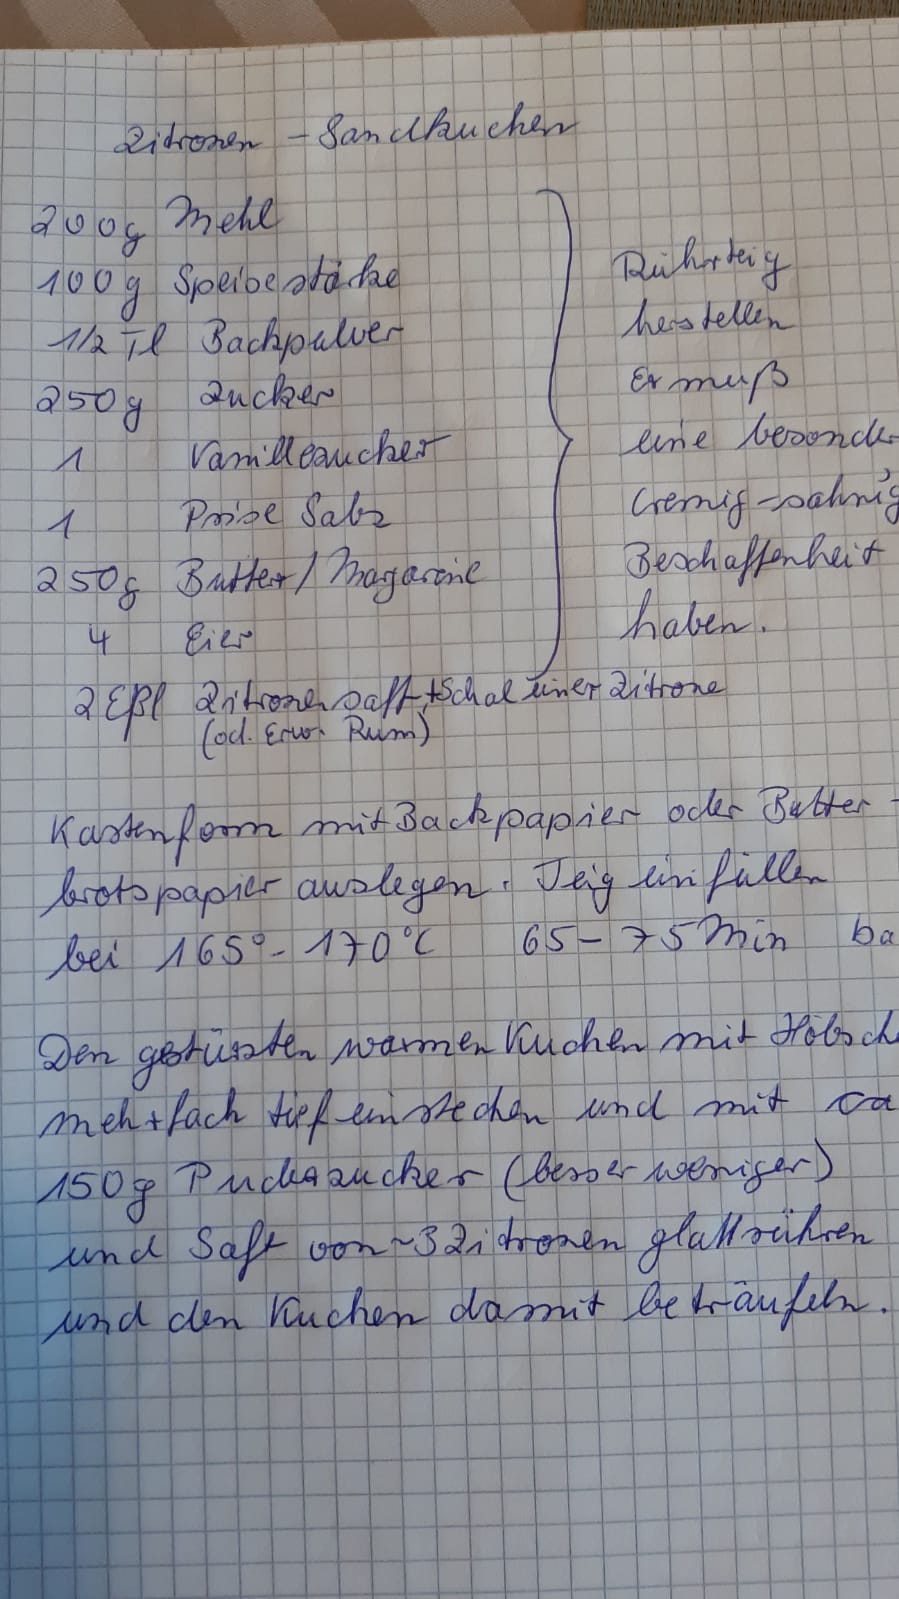 Zitronen - Sandkuchen
200g Mehl
100g Speisestärke
1/2 Tl Backpulver
250g Zucker
1 Vanillezucker
1 Prise Salz
250g Butter/Magarine
4 Eier
2 Eßl Zitronensaft + Schal einer Zitrone
(od. Erw. Rum)
Rührteig
herstellen
Er muß
eine besonde
cremig-sahnig
Beschaffenheit
haben.
Kastenform mit Backpapier oder Butter-
brotspapier auslegen. Teig einfüllen
bei 165°- 170°C 65-75 Min ba
Den gestürzten warmen Kuchen mit Hölsch
mehrfach tief einstechen und mit ca
150g Puderzucker (besser weniger)
und Saft von ~3 Zitronen glattrühren
und den Kuchen damit beträufeln.